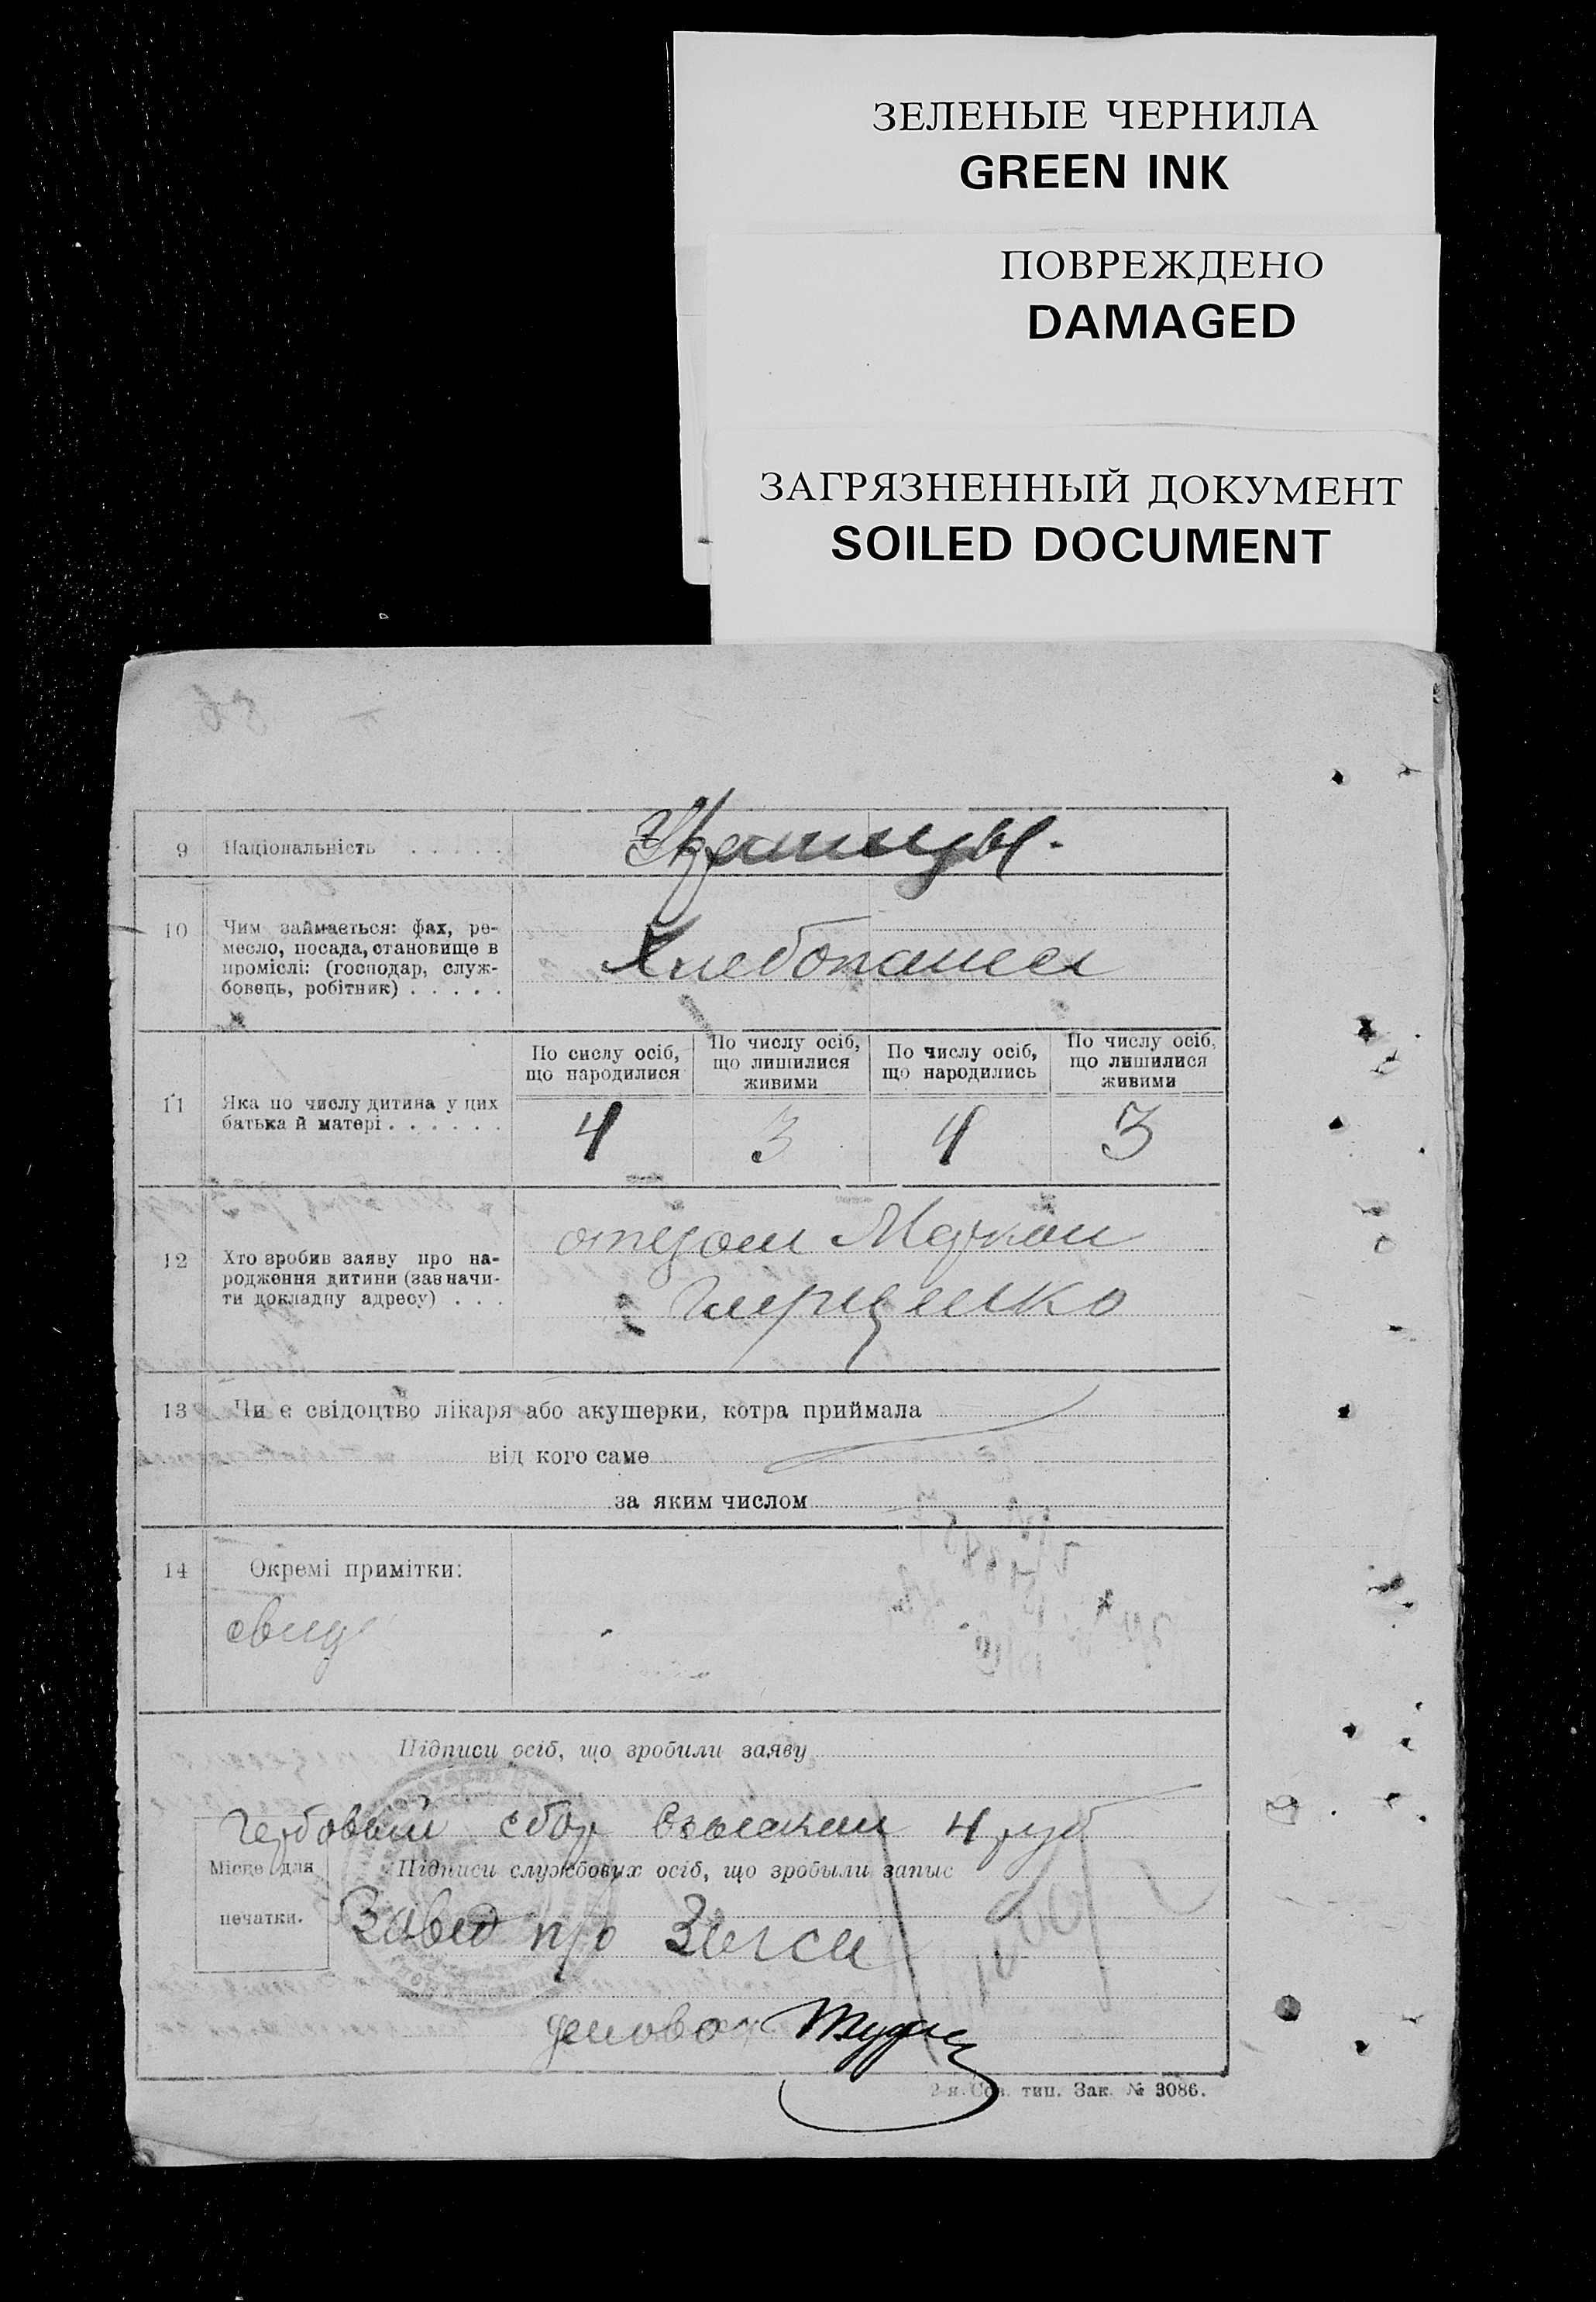 ЗЕЛЕНЫЕ ЧЕРНИЛА
GREEN INK
ПОВРЕЖДЕНО
DAMAGED
ЗАГРЯЗНЕННЫЙ ДОКУМЕНТ
SOILED DOCUMENT
9 Національність . . . . .
10 Чим займається: фах, ре-
месло, посада, становище в
проміслі: (господар, служ-
бовець, робітник) . . . . .
Хлебопашец
11 Яка по числу дитина у цих
батька й матері . . . . . .
По сислу осіб,
що народилися
По числу осіб,
що лишилися
живими
По числу осіб,
що народились
По числу осіб,
що лишилися
живими
4 3 4 3
12 Хто зробив заяву про на-
родження дитини (зазначи-
ти докладну адресу) . . .
отцом
13 Чи є свідоцтво лікаря або акушерки, котра приймала
від кого саме
за яким числом
14 Окремі примітки:
свид
Підписи осіб, що зробили заяву
Гербовый сбор взыскан 4 руб
Місце для
печатки.
Підписи службових осіб, що зробыли запыс
Завед п/о Загса
2-я. Сов. тип. Зак. № 3086.